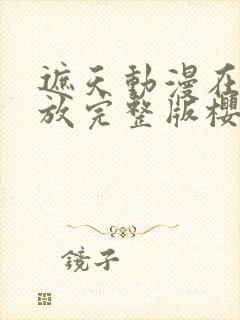 遮天動漫在
放完整版櫻
鏡子